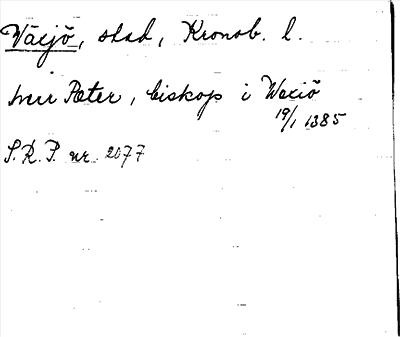 Växjö, stad, Kronob. l.
herr Pæter, biskop i Wexiö
19/1 1385
S.R.P. nr. 2077